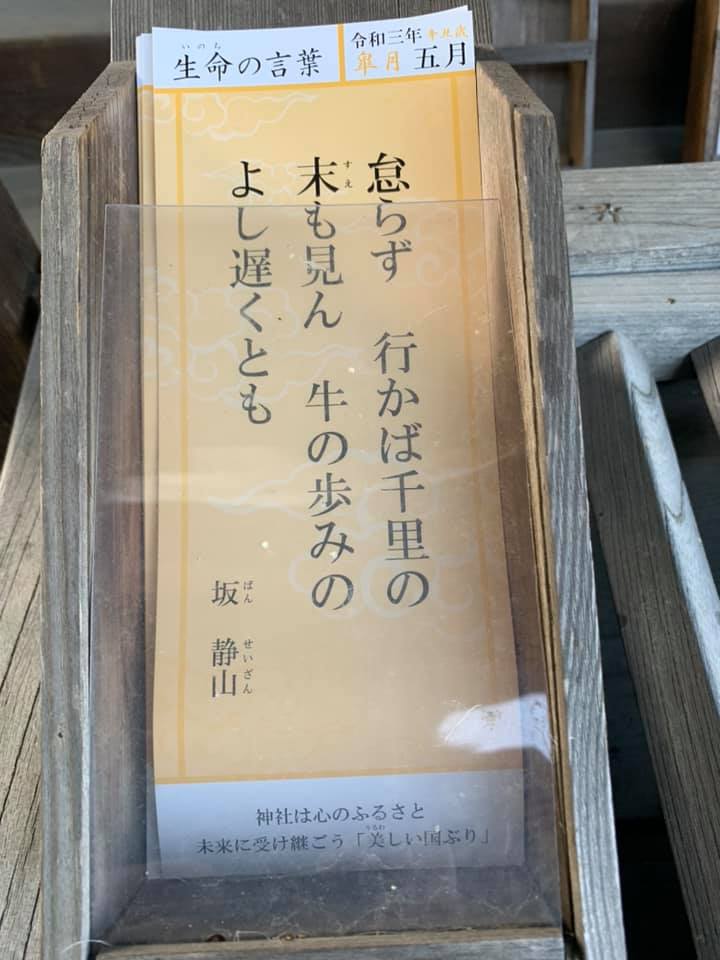 令和三年 辛丑歳
皐月 五月
いのち
生命の言葉
怠らず 行かば千里の
すえ
末も見ん 牛の歩みの
よし遅くとも
ばん せいざん
坂 静山
神社は心のふるさと
うるわ
未来に受け継ごう「美しい国ぶり」